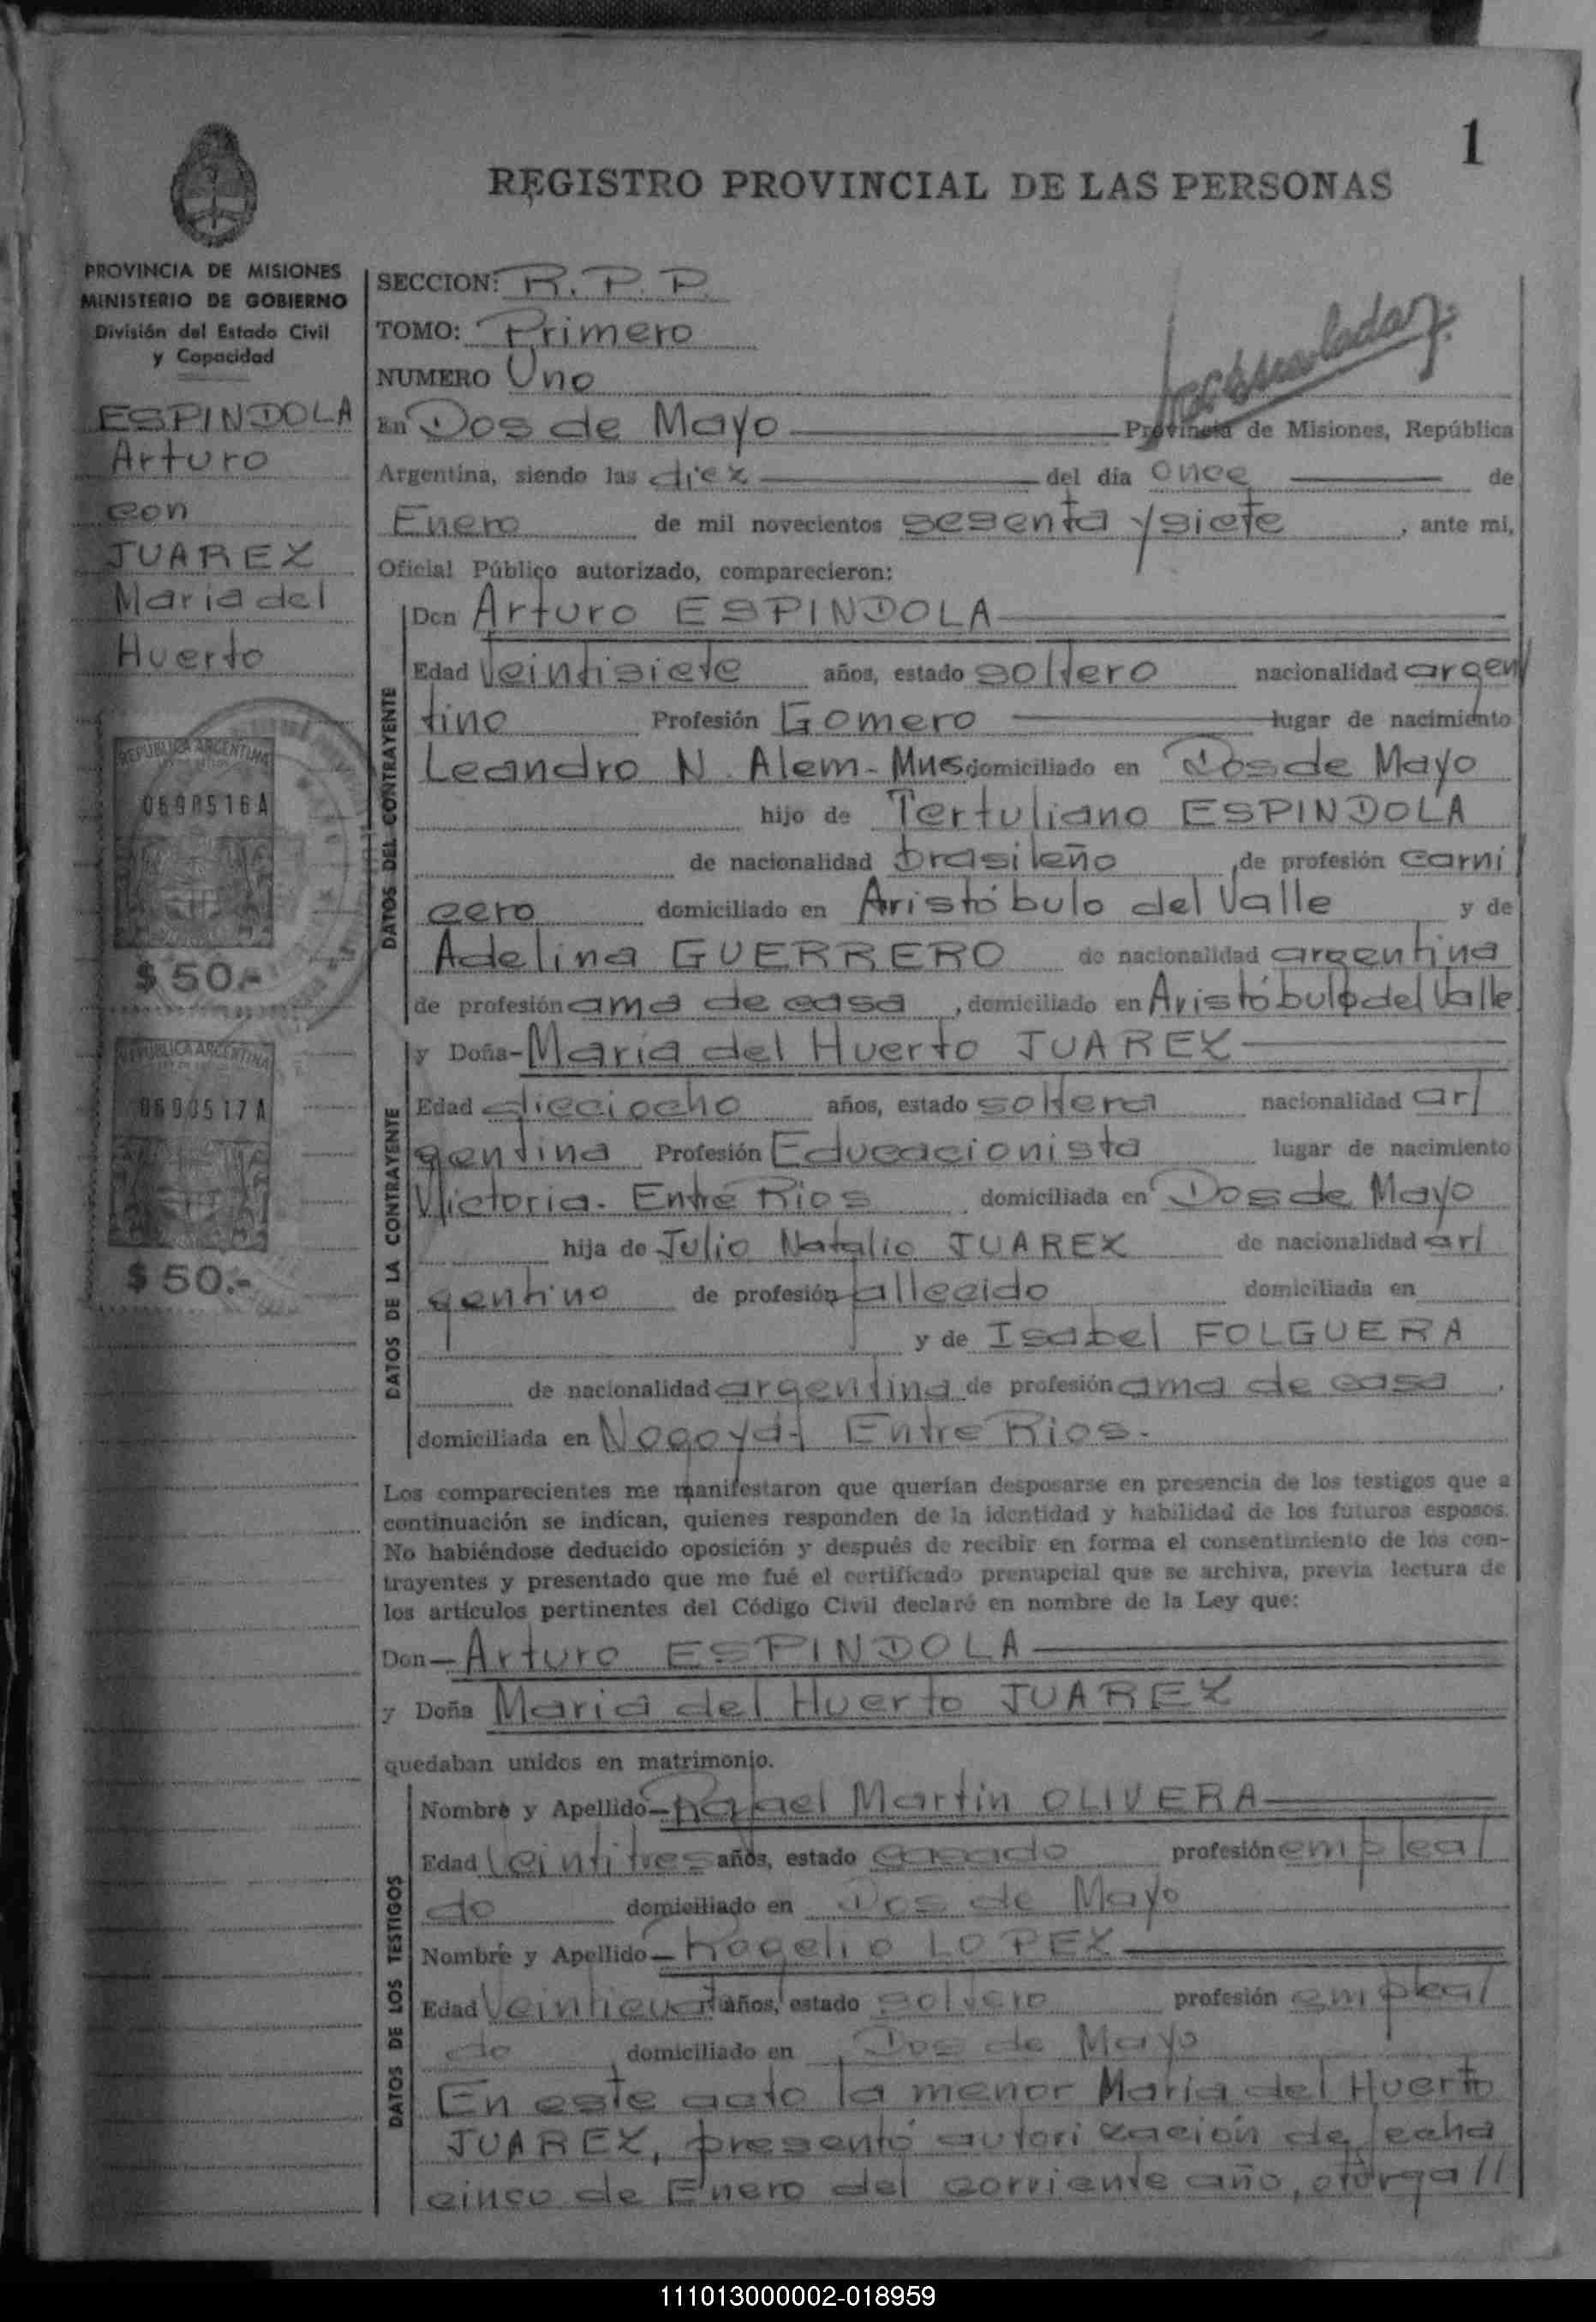 1
REGISTRO PROVINCIAL DE LAS PERSONAS
PROVINCIA DE MISIONES
MINISTERIO DE GOBIERNO
División del Estado Civil
y Capacidad
ESPINDOLA
Arturo
con
JUAREZ
Maria del
Huerto
REPUBLICA ARGENTINA
0690516A
$ 50.-
REPUBLICA ARGENTINA
0690517A
$ 50.-
SECCION: R. P. P.
TOMO: Primero
NUMERO Uno
En Dos de Mayo Provincia de Misiones, República
Argentina, siendo las diez del día once de
Enero de mil novecientos sesenta y siete, ante mi,
Oficial Público autorizado, comparecieron:
DATOS DEL CONTRAYENTE
Don Arturo ESPINDOLA
Edad Veintisiete años, estado soltero nacionalidad argen/
tino Profesión Gomero lugar de nacimiento
Leandro N. Alem- Mnes domiciliado en Dos de Mayo
hijo de Tertuliano ESPINDOLA
de nacionalidad brasileño, de profesión carni/
cero domiciliado en Aristóbulo del Valle y de
Adelina GUERRERO de nacionalidad argentina
de profesión ama de casa, domiciliado en Aristóbulo del Valle
DATOS DE LA CONTRAYENTE
y Doña- Maria del Huerto JUAREZ
Edad dieciocho años, estado soltera nacionalidad ar/
gentina Profesión Educacionista lugar de nacimiento
Victoria- Entre Rios domiciliada en Dos de Mayo
hija de Julio Natalio JUAREZ de nacionalidad ar/
gentino de profesión fallecido domiciliada en
y de Isabel FOLGUERA
de nacionalidad argentina de profesión ama de casa,
domiciliada en Nogoyá- Entre Rios-
Los comparecientes me manifestaron que querían desposarse en presencia de los testigos que a
continuación se indican, quienes responden de la identidad y habilidad de los futuros esposos.
No habiéndose deducido oposición y después de recibir en forma el consentimiento de los con-
trayentes y presentado que me fué el certificado prenupcial que se archiva, previa lectura de
los artículos pertinentes del Código Civil declaré en nombre de la Ley que:
Don- Arturo ESPINDOLA
y Doña Maria del Huerto JUAREZ
quedaban unidos en matrimonio.
DATOS DE LOS TESTIGOS
Nombre y Apellido- Rafael Martin OLIVERA
Edad Veintitres años, estado casado profesión emplea/
do domiciliado en Dos de Mayo
Nombre y Apellido- Rogelio LOPEZ
Edad años, estado soltero profesión emplea/
do domiciliado en Dos de Mayo
En este acto la menor Maria del Huerto
JUAREZ, presentó autorización de fecha
cinco de Enero del corriente año, otorga//
111013000002-018959